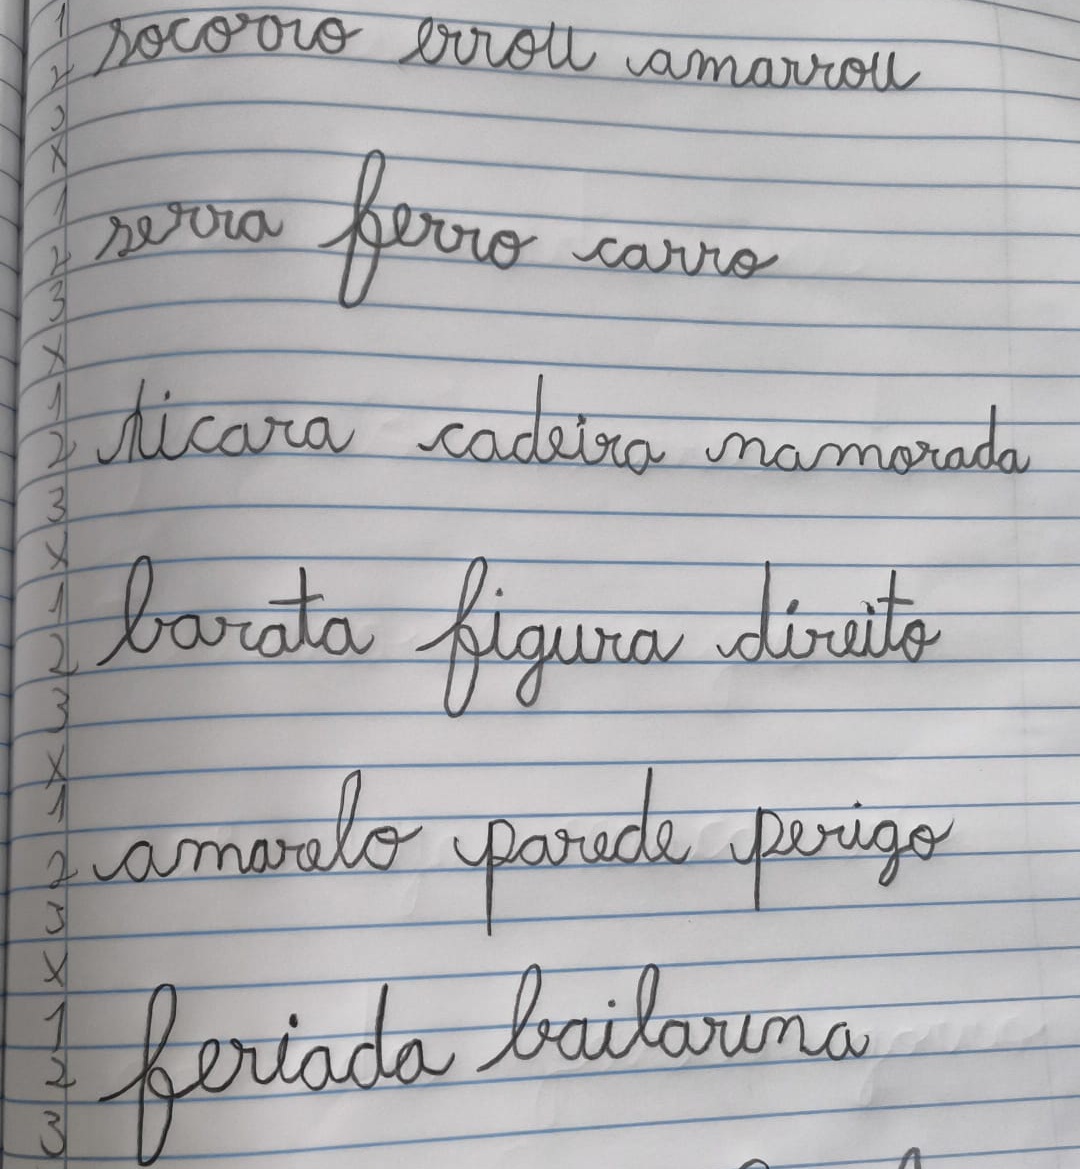 1
2 socorro errou amarrou
3
x
1
2 serra ferro carro
3
x
1
2 xicara cadeira namorada
3
x
1
2 barata figura direito
3
x
1
2 amarelo parede perigo
3
x
1
2 feriada bailarina
3